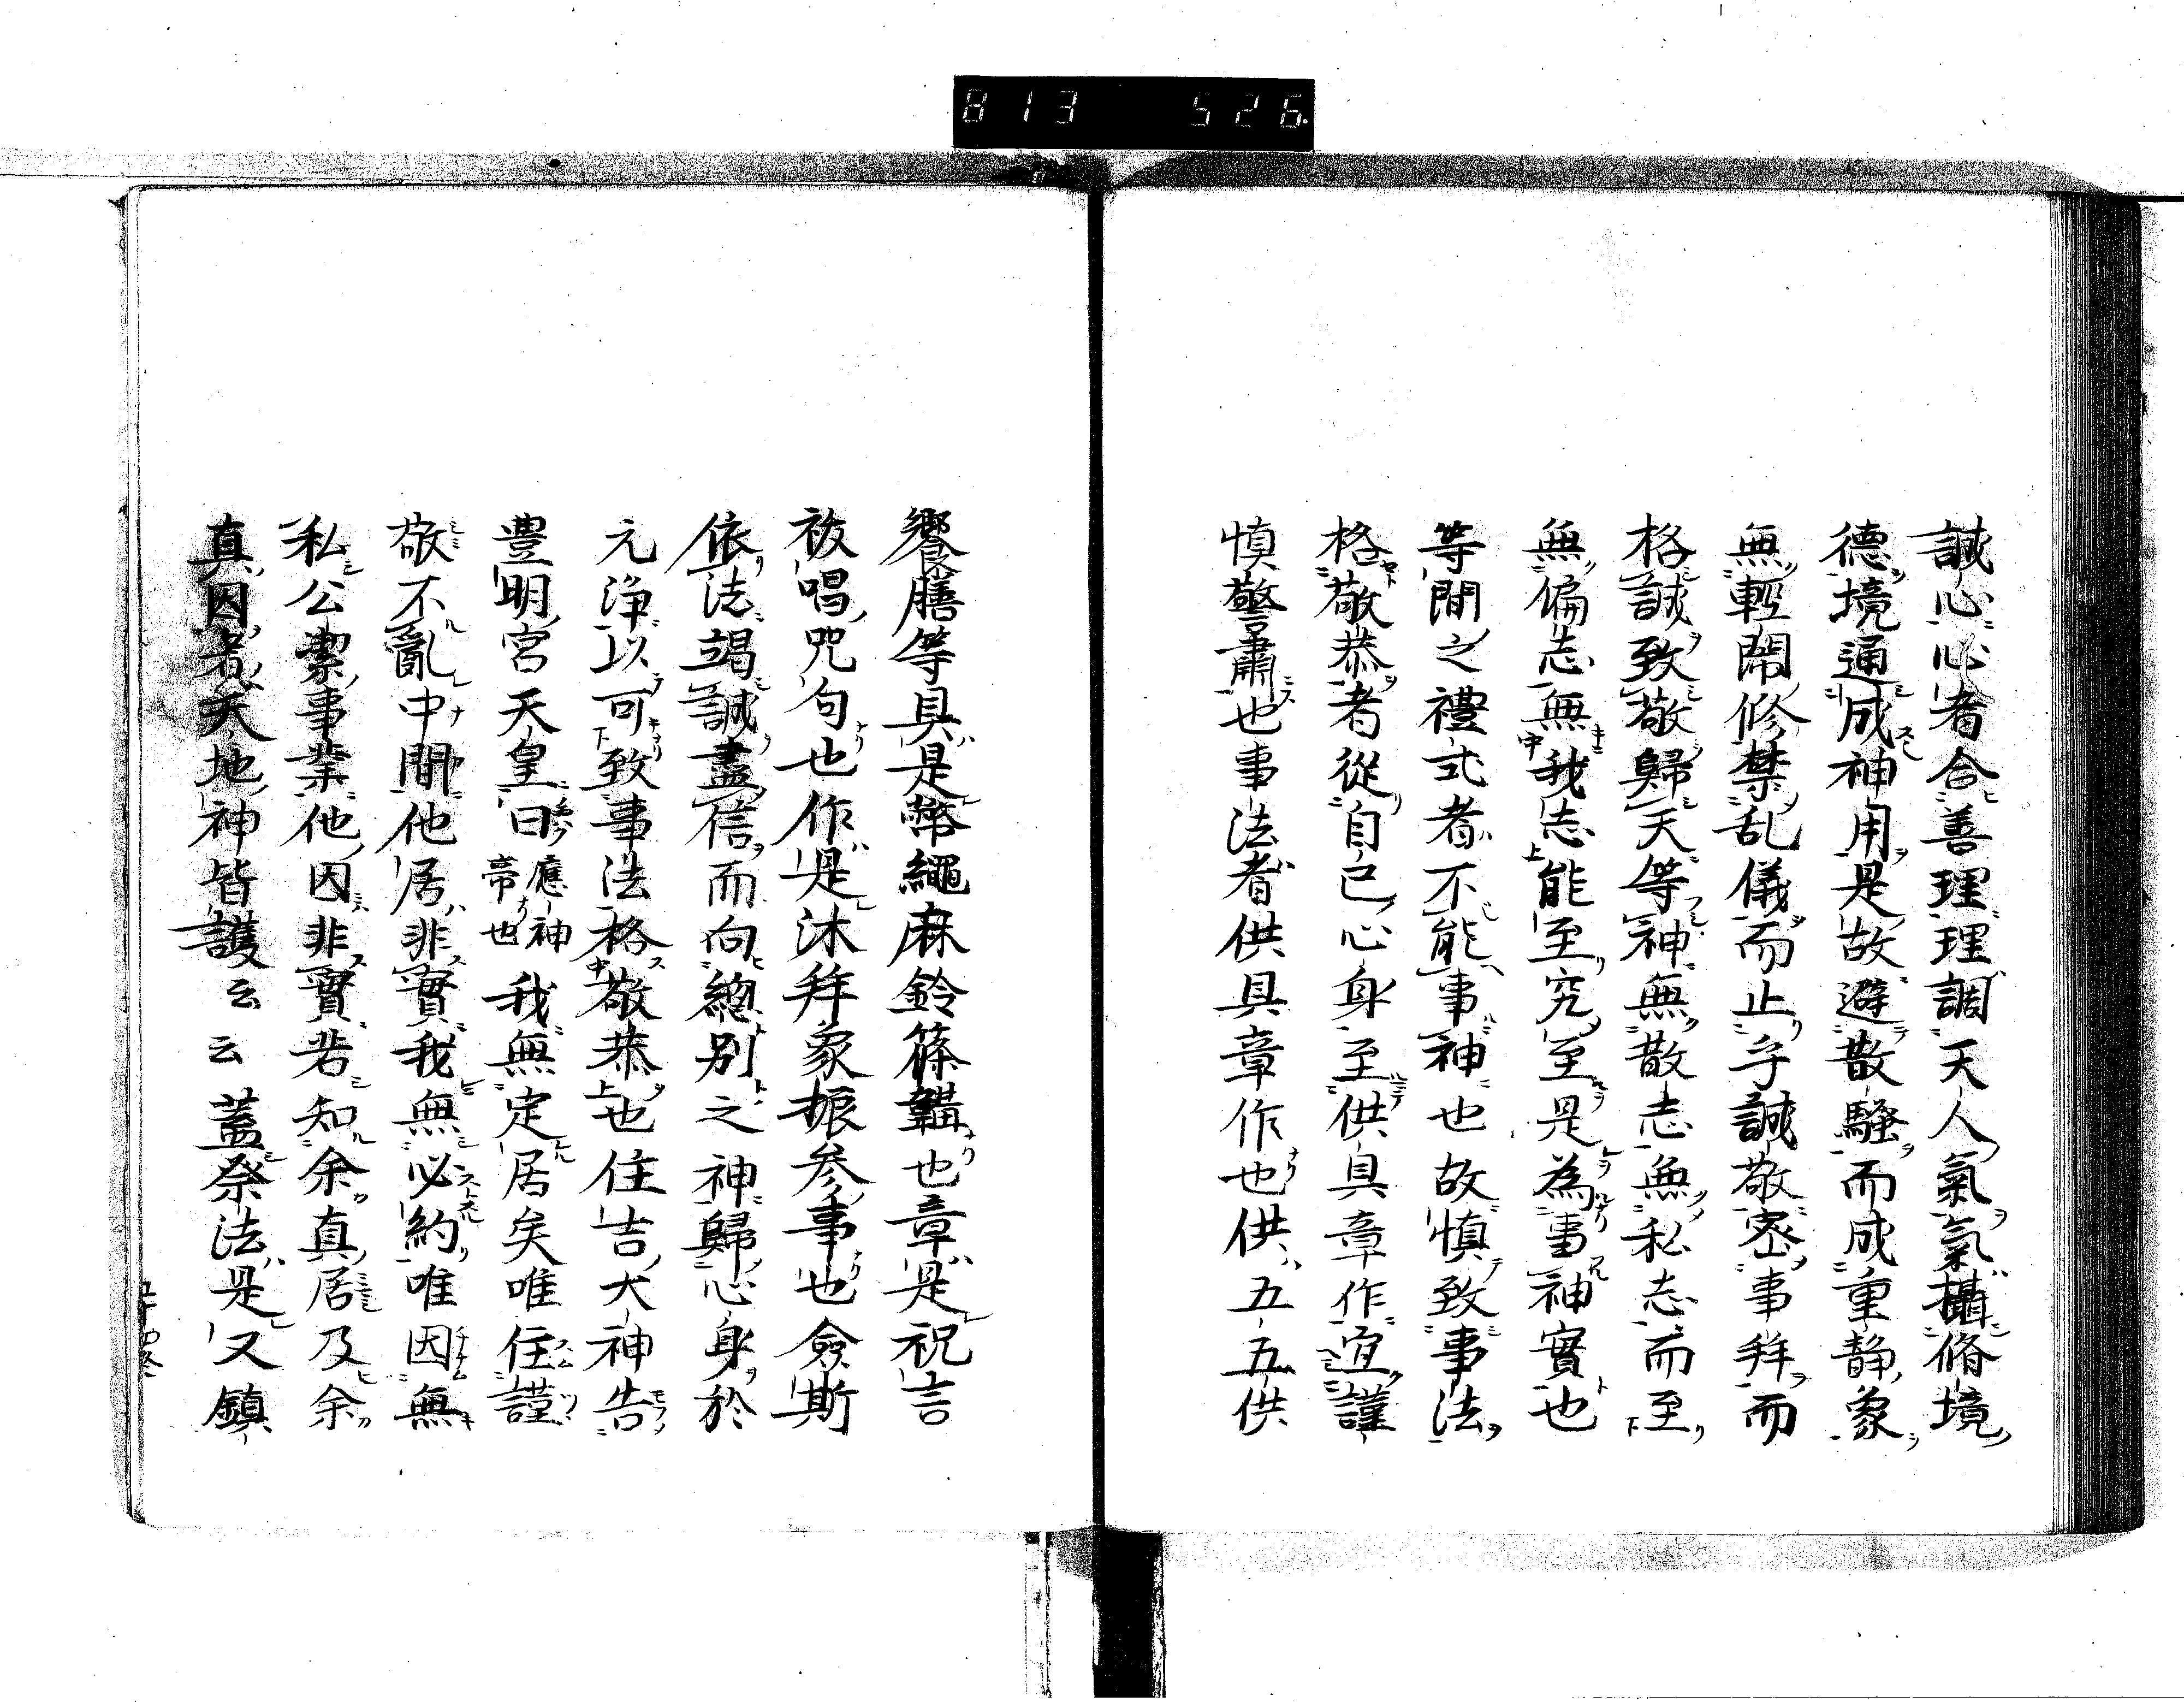 813 526
誠心心者合善理理調天人氣氣攝脩境
德境通成神用是故避散騷而成重静象
無輕鬧修禁乱儀而止乎誠敬密事拜而
格誠致敬歸天等神無散志無私志而至
無偏志無我志能至究至是為事神實也
等閒之禮式者不能事神也故慎致事法
格敬恭者從自己心身至供具章作宜謹
慎警肅也事法者供具章作也供五五供
饗膳等具是幣繩麻鈴篠韝也章是祝言
祓唱咒句也作是沐拜象振参事也僉斯
依法竭誠盡信而向總別之神歸心身於
元浄以可致事法格敬恭也住吉大神告
豊明宮天皇曰應神帝也我無定居矣唯住謹
敬不亂中間他居非實我無必約唯因無
私公潔事業他因非實若知余真居及余
真因者天地神皆護云云蓋祭法是又鎮